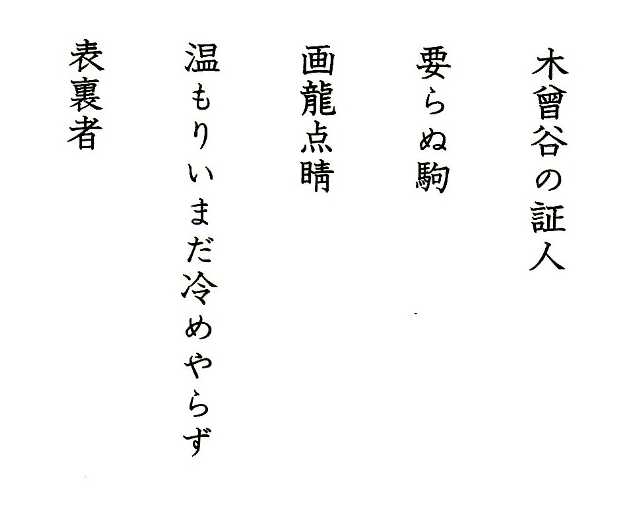 木曾谷の証人
要らぬ駒
画龍点睛
温もりいまだ冷めやらず
表裏者